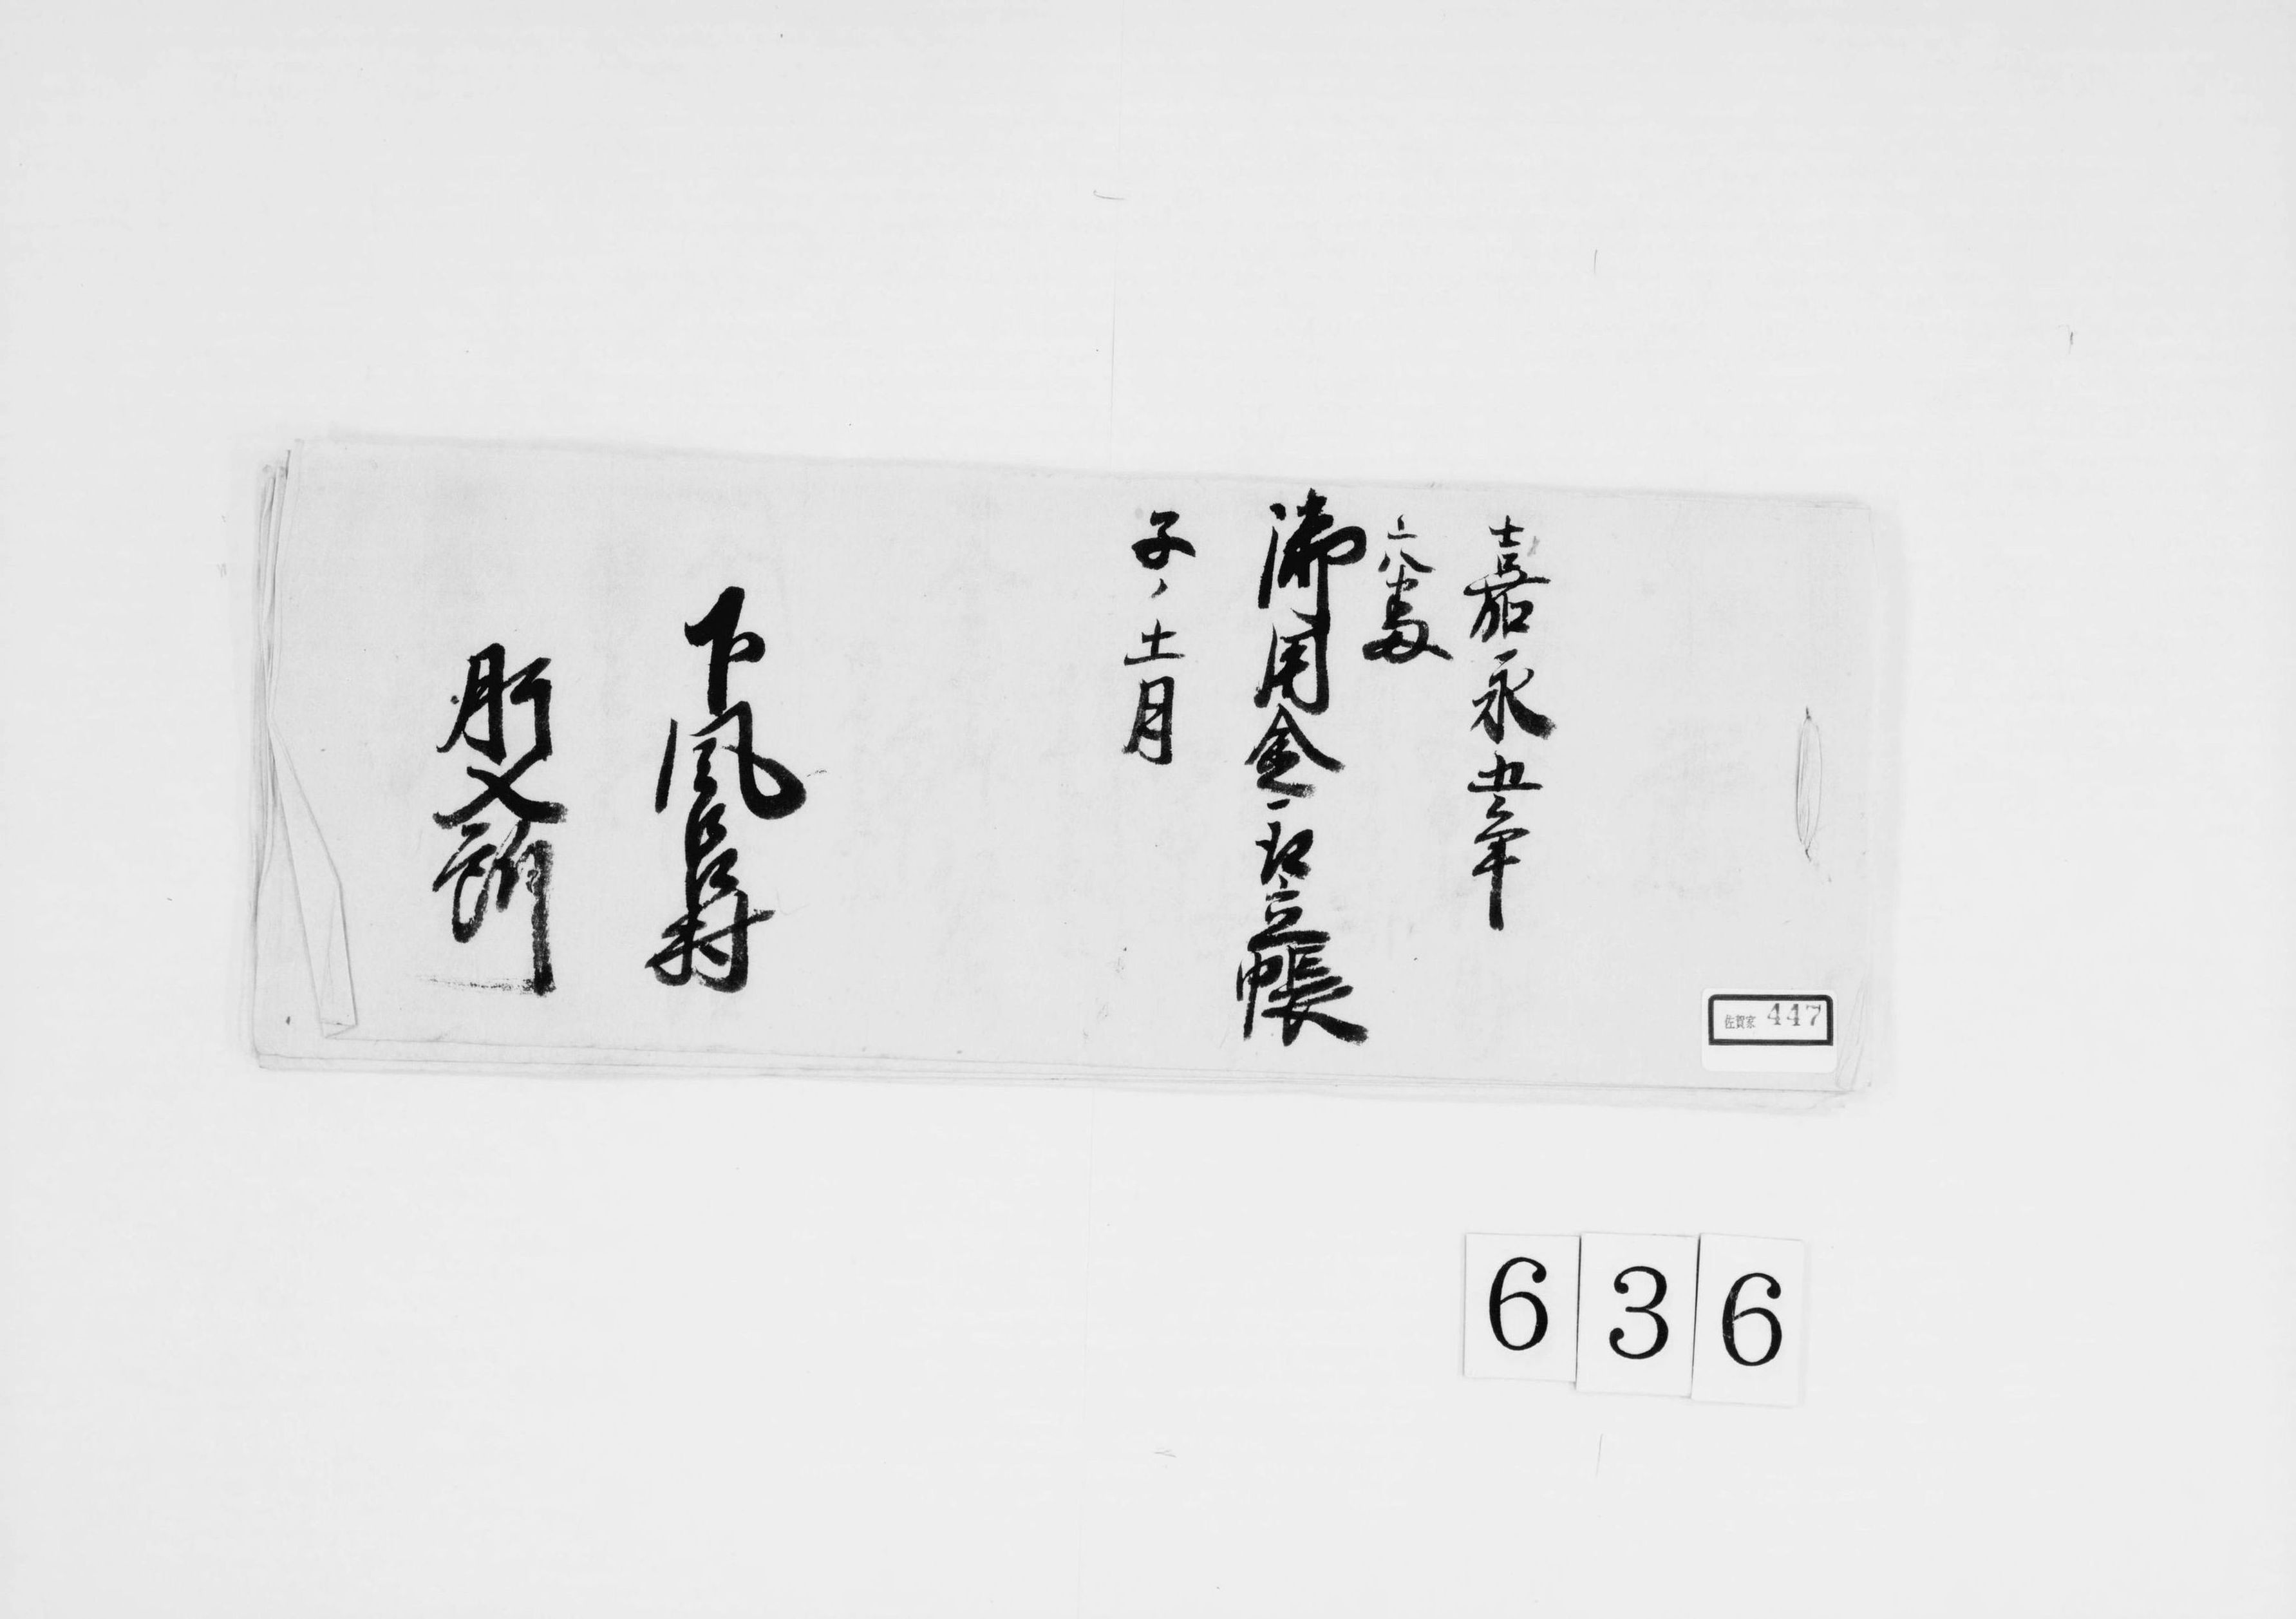 嘉永五年
御用金取立帳
子ノ十一月
下風呂村
肝入
佐賀家 447
636